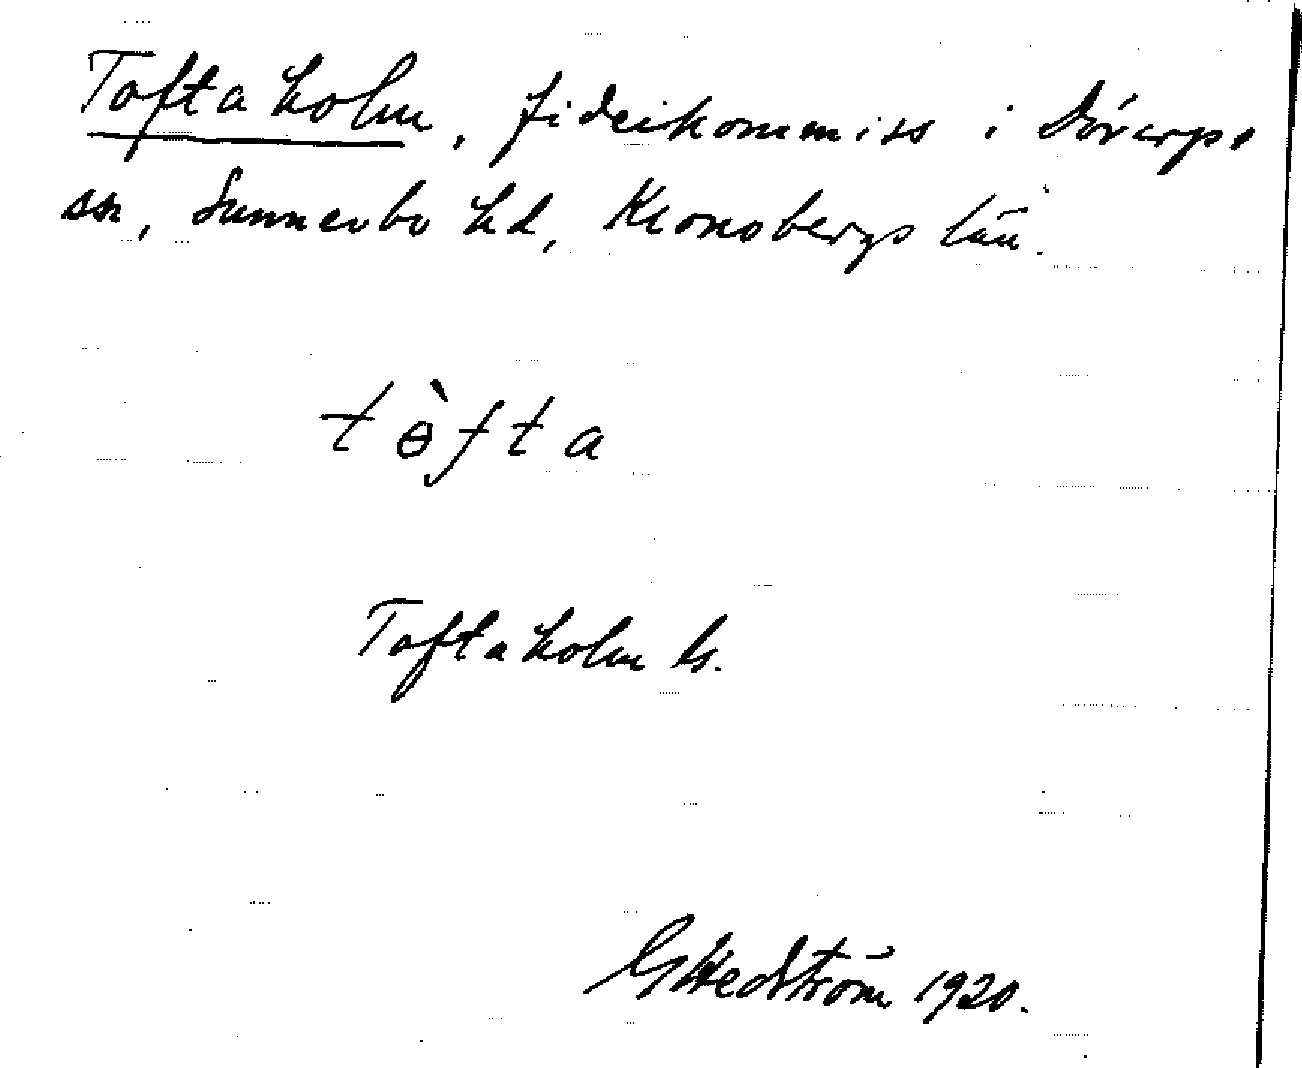 Toftaholm, fideikommiss i Dörarps
sn, Sunnerbo hd, Kronobergs län.
tɵ̀fta
Toftaholm ls.
G Hedström 1920.